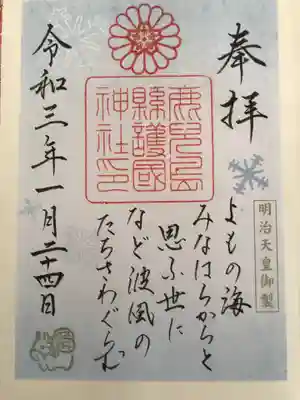 奉拝
鹿兒島
縣護國
神社印
明治天皇御製
よもの海
みなはらからと
思ふ世に
など波風の
たちさわぐらむ
令和三年一月二十四日